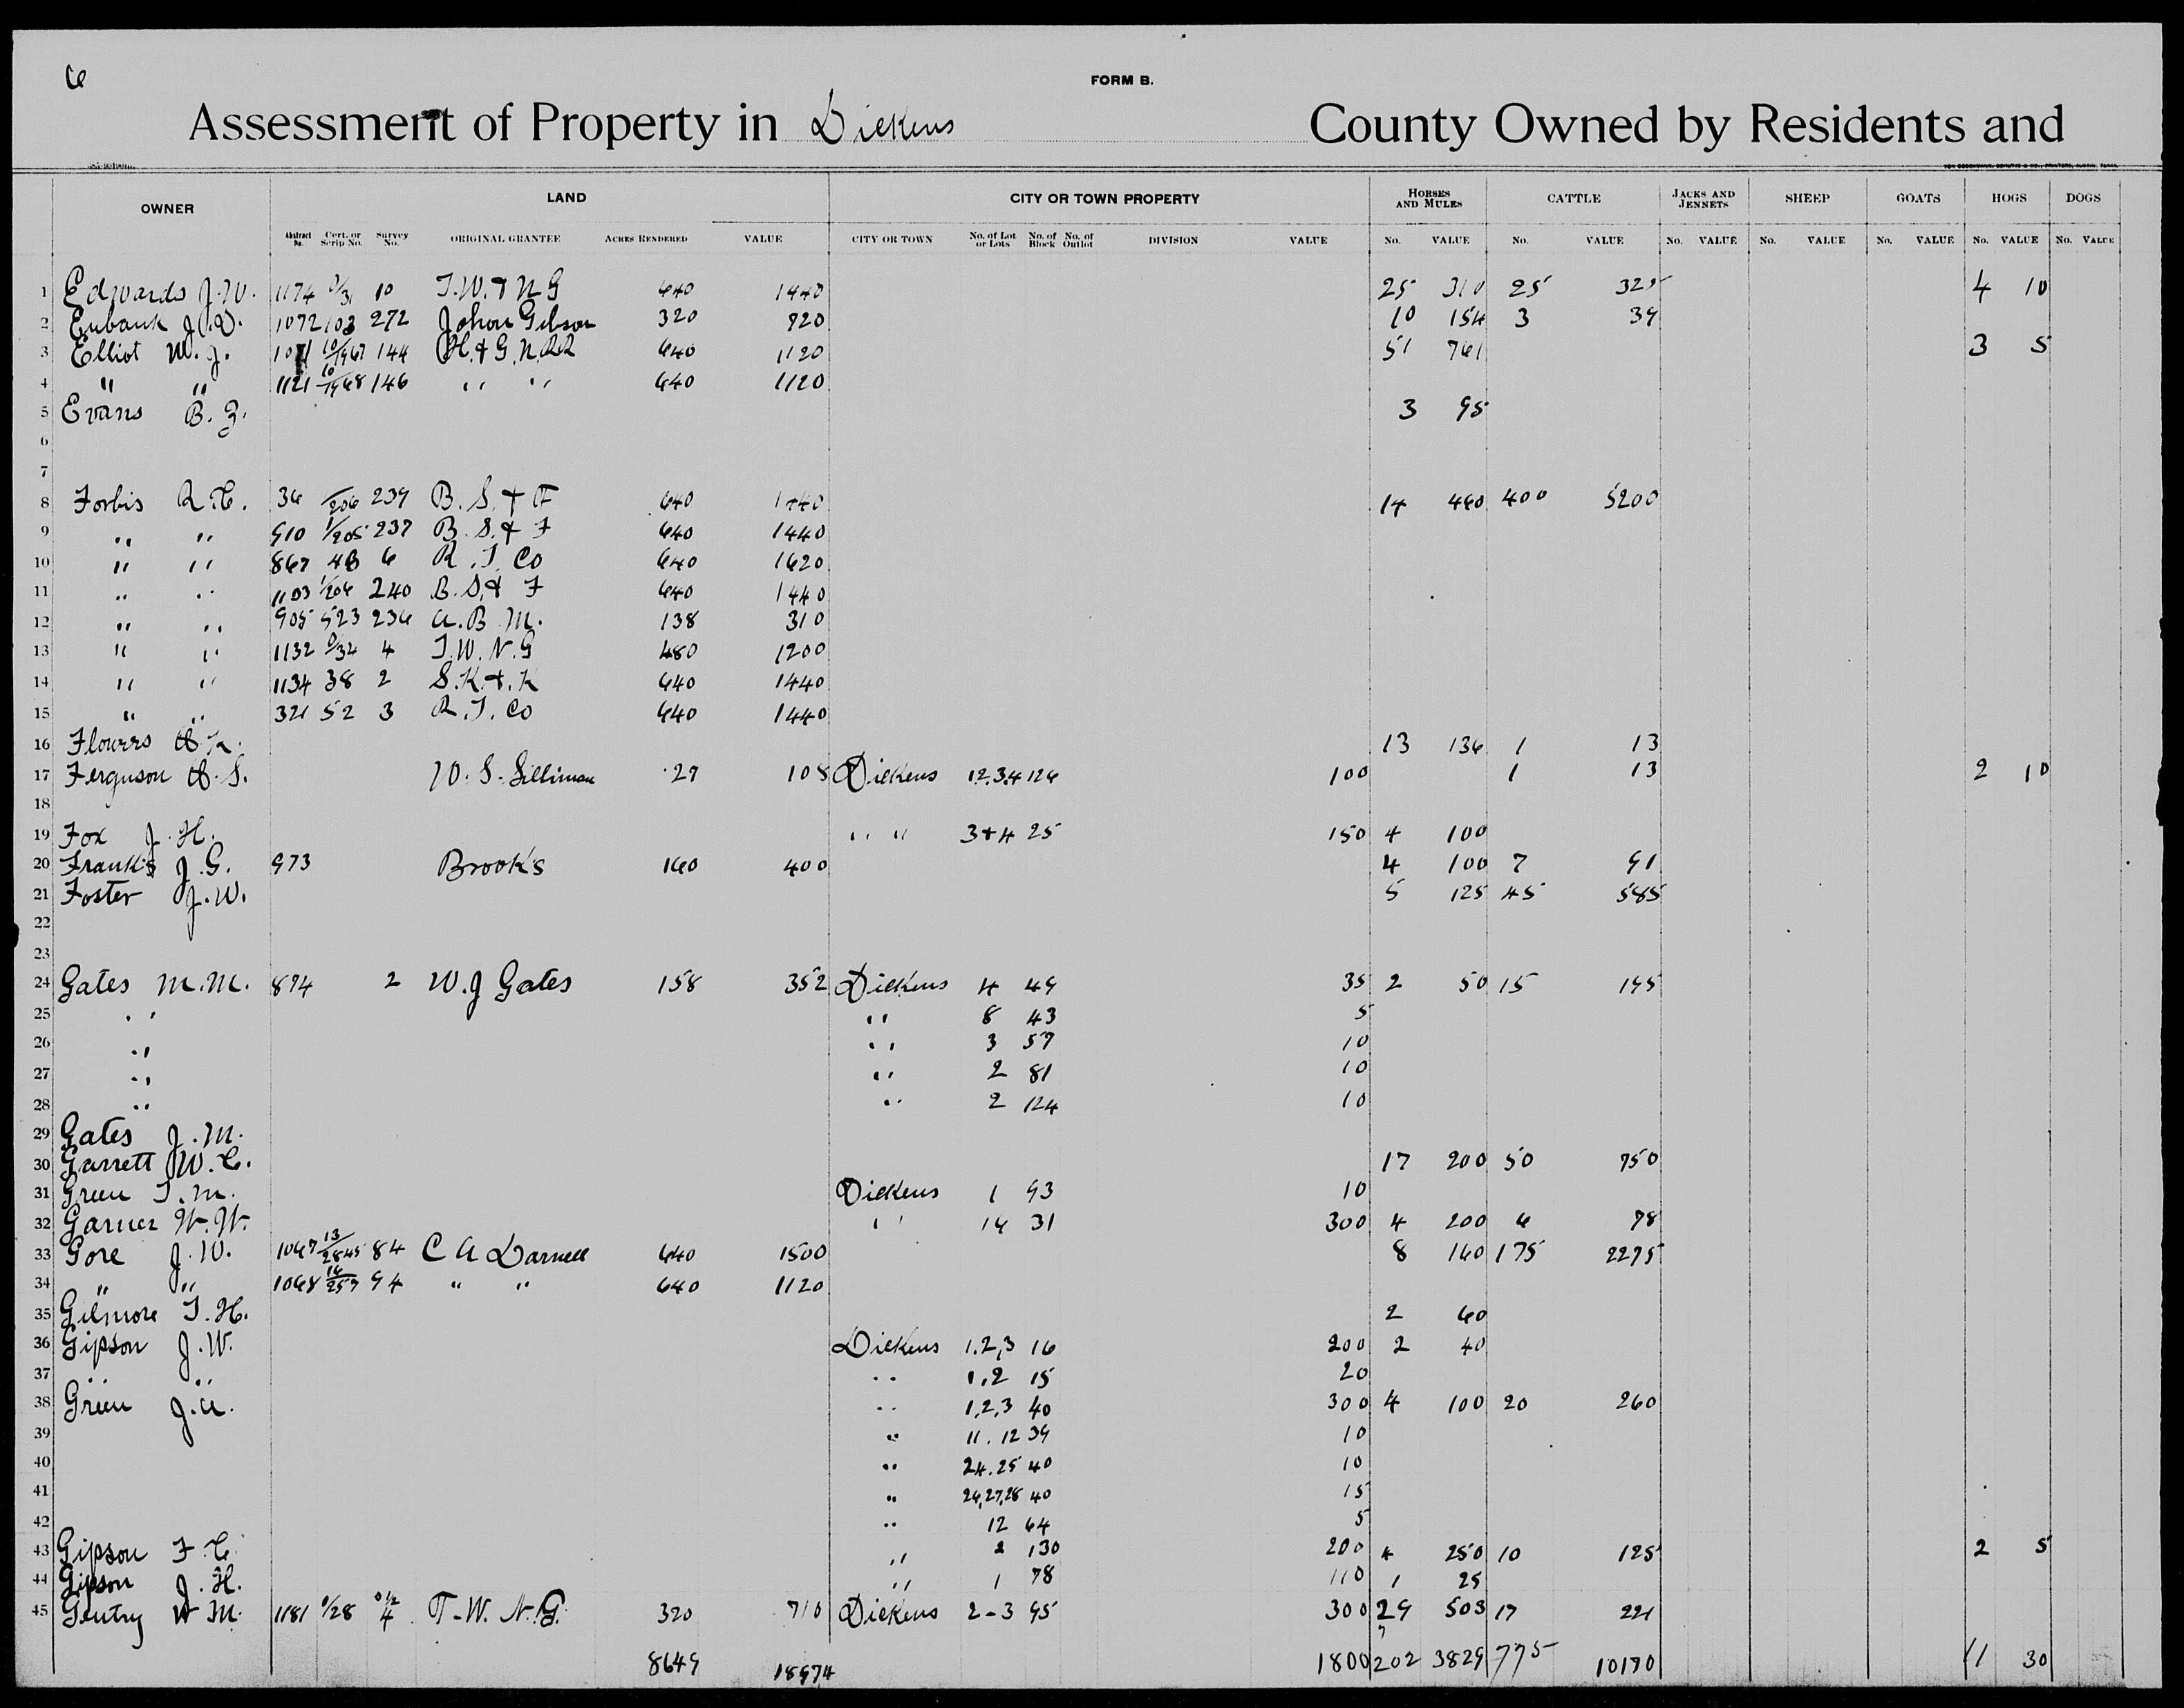 6
FORM B.
Assessment of Property in Dickens County Owned by Residents and
OWNER LAND CITY OR TOWN PROPERTY HORSES AND MULES CATTLE JACKS AND JENNETS SHEEP GOATS HOGS DOGS
Abstract No. Cert. or Scrip No. Survey No. ORIGINAL GRANTEE ACRES RENDERED VALUE CITY OR TOWN No. of Lot or Lots No. of Block No. of Outlot DIVISION VALUE No. VALUE No. VALUE No. VALUE No. VALUE No. VALUE No. VALUE No. VALUE
1 Edwards J.W. 1174 0/31 10 T.W.&N G 640 1440 25 310 25 325 4 10
2 Eubank J.D. 1072 103 272 John Gibson 320 720 10 154 3 39
3 Elliot W.J. 1071 10/1967 144 H.&G.N.RR 640 1120 51 761 3 5
4 " " 1121 10/1968 146 " " 640 1120
5 Evans B.Z. 3 95
6
7
8 Forbis R.C. 36 1/206 239 B.S.&F 640 1440 14 460 400 5200
9 " " 910 1/205 237 B.S.&F 640 1440
10 " " 867 48 6 R.T. Co 640 1620
11 " " 1103 1/206 240 B.S.& F 640 1440
12 " " 905 523 236 A.B.M. 138 310
13 " " 1132 0/34 4 T.W.N.G 480 1200
14 " " 1134 38 2 S.K.&.K 640 1440
15 " " 321 52 3 R.T. Co 640 1440
16 Flowers K. 13 136 1 13
17 Ferguson S. W.S. Silliman 27 108 Dickens 1.2.3.4 126 100 1 13 2 10
18
19 Fox J.H. " " 3&4 25 150 4 100
20 Frank's J.G. 973 Brook's 160 400 4 100 7 91
21 Foster J.W. 5 125 45 585
22
23
24 Gates M.M. 874 2 W.J Gates 158 352 Dickens 4 49 35 2 50 15 195
25 " " 8 43 5
26 " " 3 57 10
27 " " 2 81 10
28 " " 2 124 10
29 Gates J.M.
30 Garrett W.C. 17 200 50 750
31 Green T.M. Dickens 1 93 10
32 Garner W.W. " 14 31 300 4 200 6 78
33 Gore J.W. 1067 13/2845 84 C A Darnell 640 1500 8 160 175 2275
34 " " 1068 16/257 94 " " 640 1120
35 Gilmore T.H. 2 60
36 Gipson J.W. Dickens 1.2,3 16 200 2 40
37 " " " 1,2 15 20
38 Green J.A. " 1,2,3 40 300 4 100 20 260
39 " 11.12 39 10
40 " 24.25 40 10
41 " 26,27,28 40 15
42 " 12 64 5
43 Gipson F.C. " 2 130 200 4 250 10 125 2 5
44 Gipson J.H. " 1 78 110 1 25
45 Gentry W M. 1181 0/28 4 T.W.N.G. 320 710 Dickens 2-3 95 300 29 503 17 221
8649 18974 1800 202 3829 775 10170 11 30